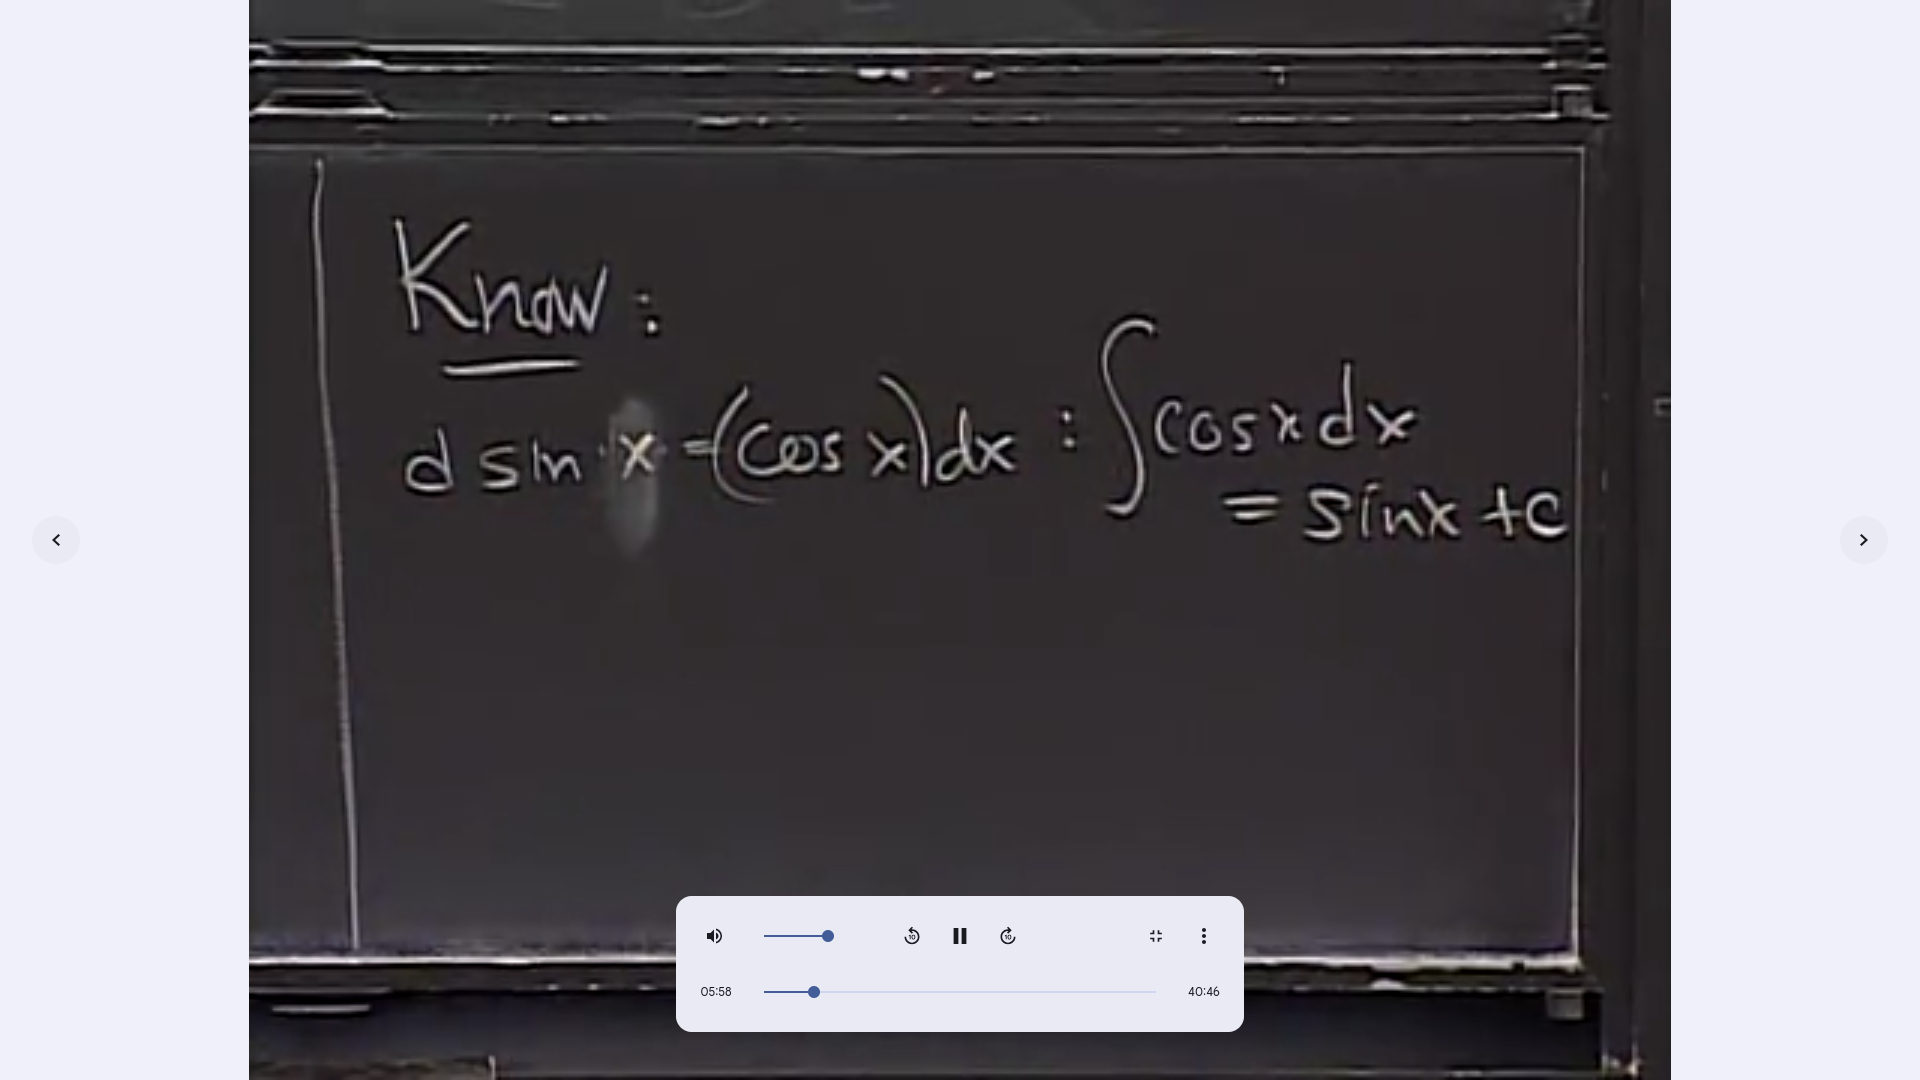 Know:
d sin x = (cos x) dx : ∫ cos x dx
= sin x + c
05:58
40:46